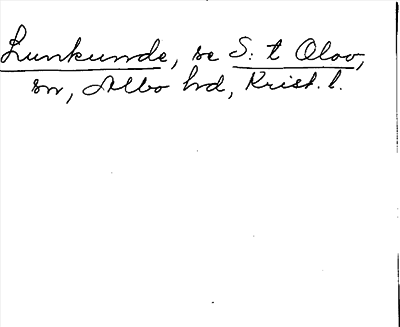 Lunkunde, se S: t Olov,
sn, Albo hd, Krist. l.